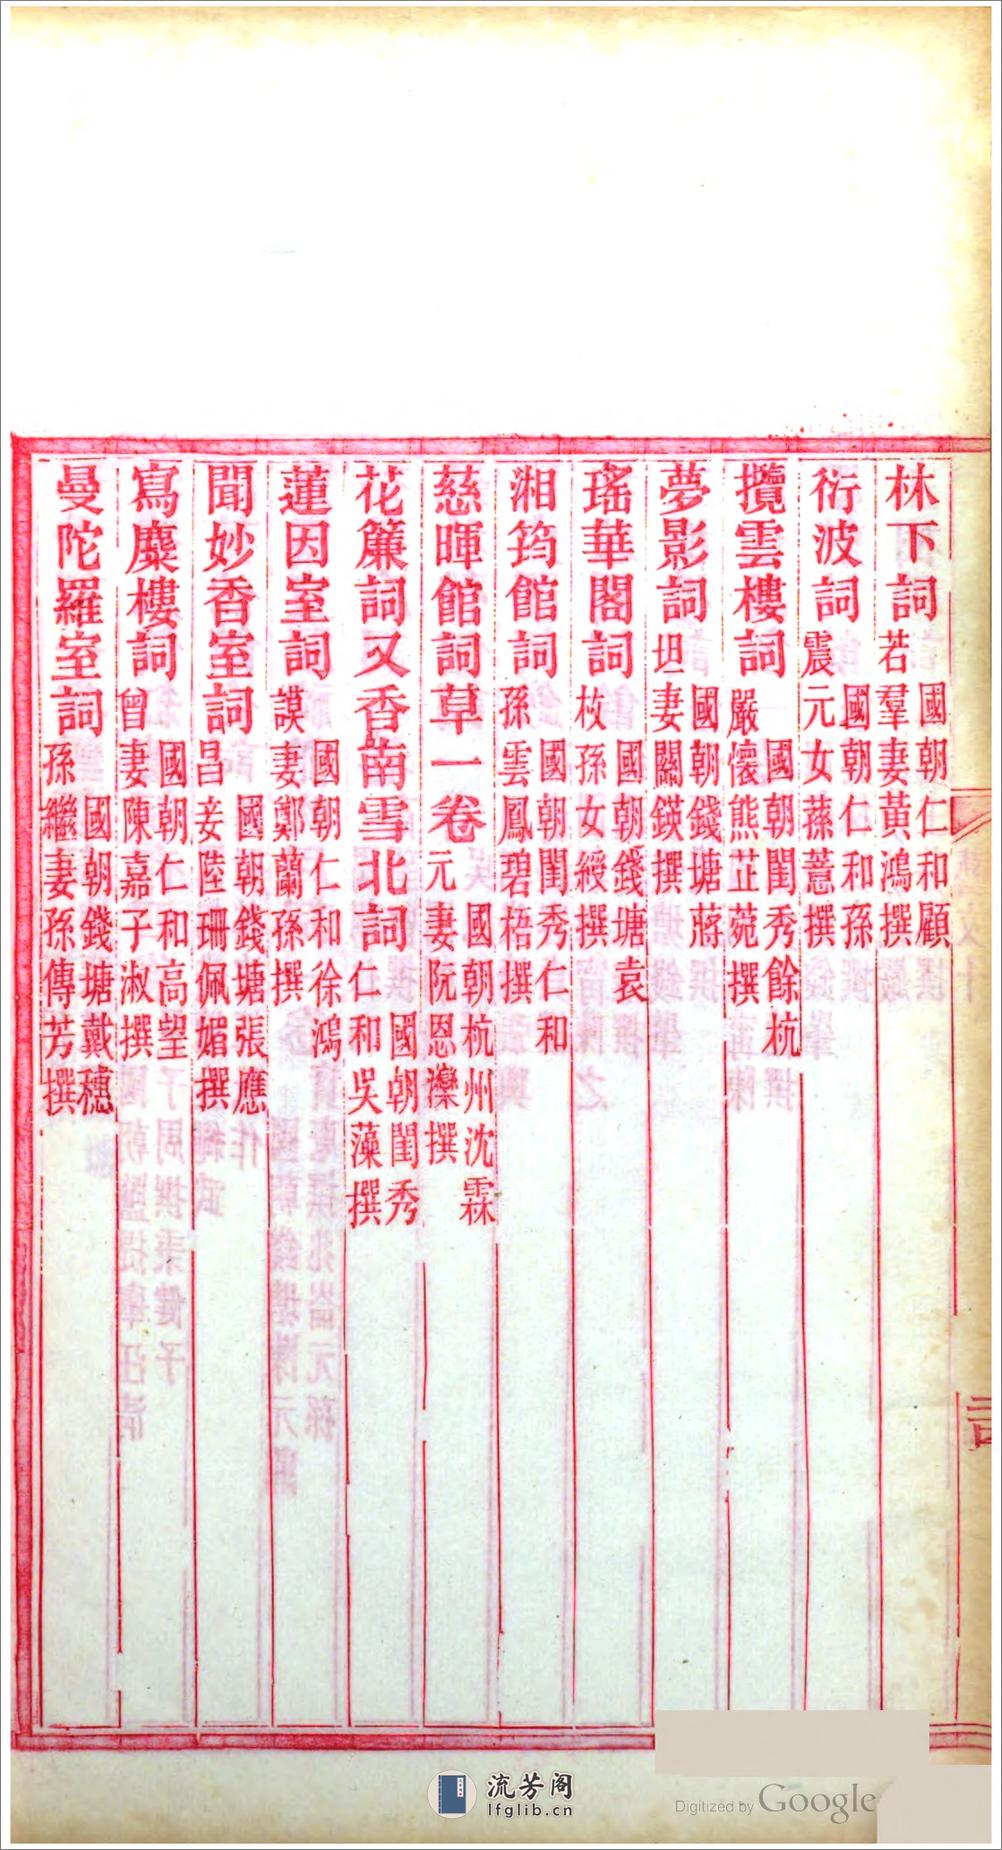 林下詞 國朝仁和顧若羣妻黃鴻撰
衍波詞 國朝仁和孫震元女蓀薏撰
攬雲樓詞 國朝閨秀餘杭嚴懷熊芷菀撰
夢影詞 國朝錢塘蔣坦妻關鍈撰
瑤華閣詞 國朝錢塘袁枚孫女綬撰
湘筠館詞 國朝閨秀仁和孫雲鳳碧梧撰
慈暉館詞草一卷 國朝杭州沈霖元妻阮恩灤撰
花簾詞又香南雪北詞 國朝閨秀仁和吳藻撰
蓮因室詞 國朝仁和徐鴻謨妻鄭蘭孫撰
聞妙香室詞 國朝錢塘張應昌妾陸珊佩媚撰
寫麋樓詞 國朝仁和高望曾妻陳嘉子淑撰
曼陀羅室詞 國朝錢塘戴穗孫繼妻孫傳芳撰
流芳阁
lfglib.cn
Digitized by Google